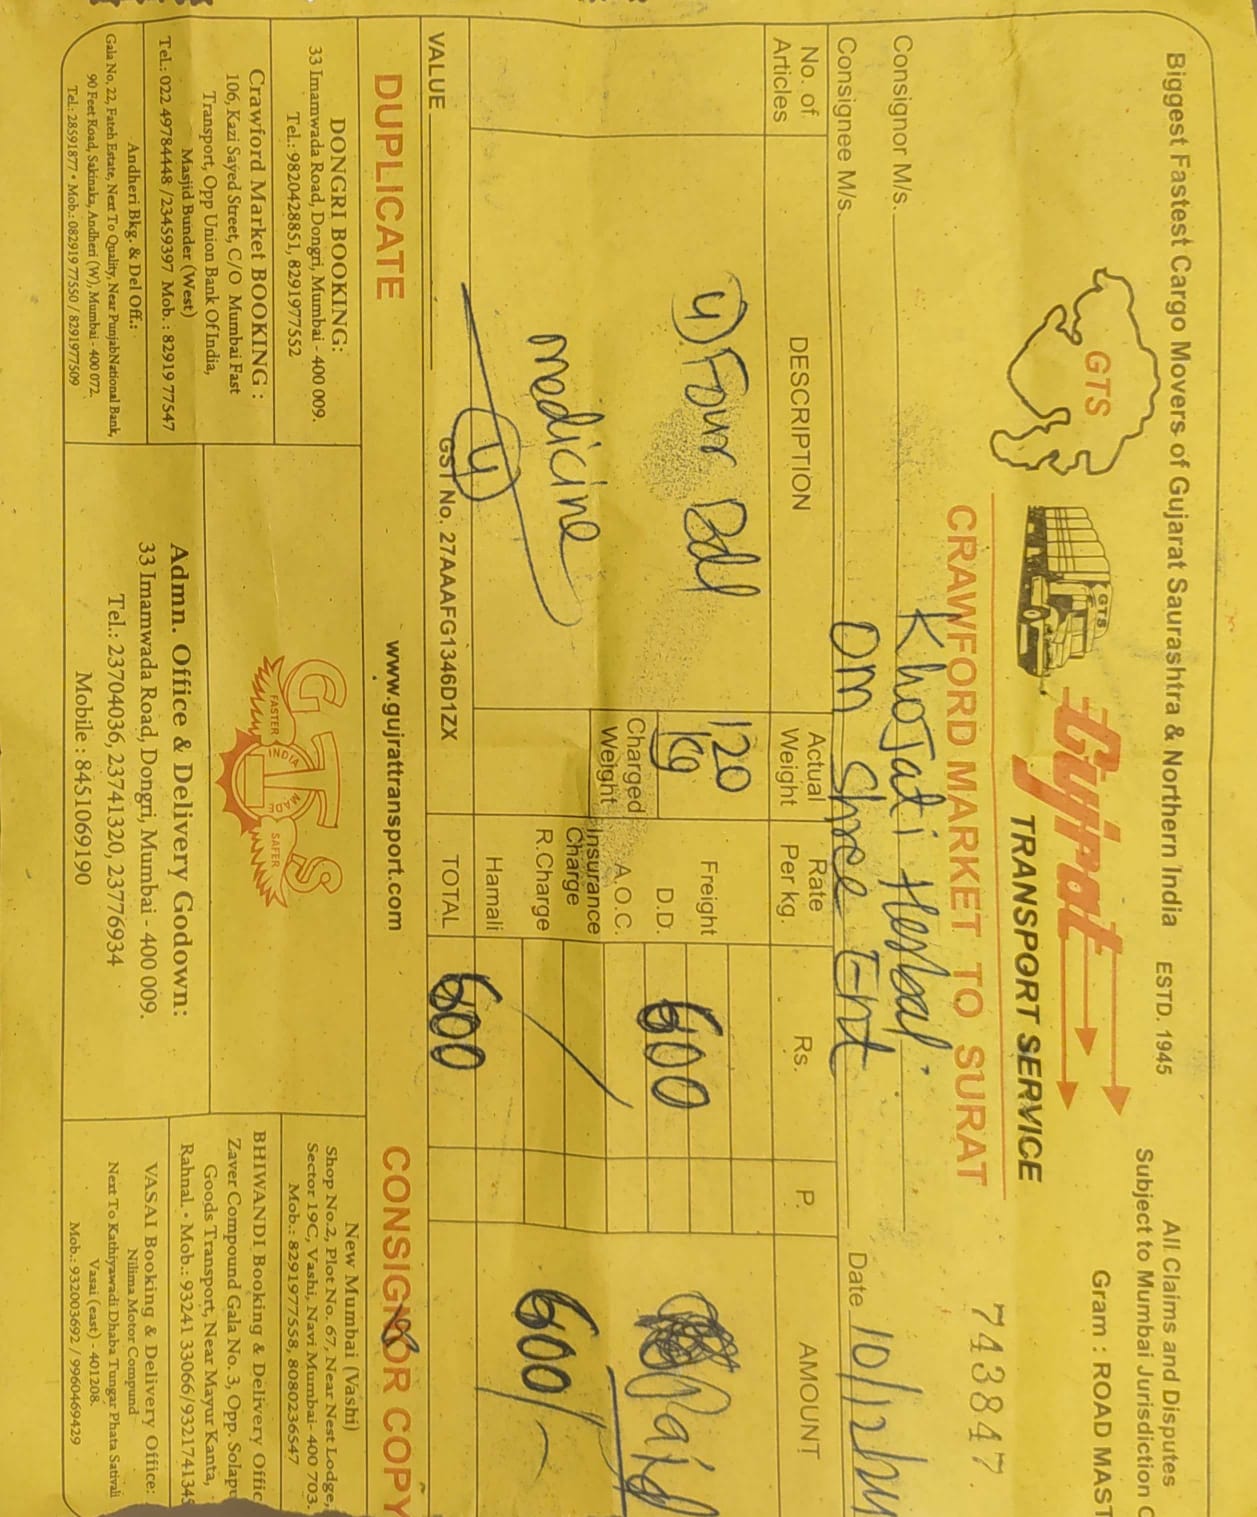 Biggest Fastest Cargo Movers of Gujarat Saurashtra & Northern India ESTD. 1945
All Claims and Disputes
Subject to Mumbai Jurisdiction
Gram : ROAD MAST
GTS
GTS
Gujrat
TRANSPORT SERVICE
CRAWFORD MARKET TO SURAT
743847
Consignor M/s. Khojati Herbal.
Consignee M/s. Om Shree Ent
Date 10/12/
No. of Articles
DESCRIPTION
Actual Weight
Rate Per kg.
Rs.
P.
AMOUNT
(4) Four Bdl
120 kg
Freight
D.D. 600
Paid
medicine
Charged Weight
A.O.C.
Insurance Charge
R.Charge
600/-
(4)
Hamali
VALUE
GST No. 27AAAFG1346D1ZX
TOTAL 600
DUPLICATE
www.gujrattransport.com
CONSIGNOR COPY
DONGRI BOOKING:
33 Imamwada Road, Dongri, Mumbai - 400 009.
Tel.: 9820428851, 8291977552
Crawford Market BOOKING :
106, Kazi Sayed Street, C/O Mumbai Fast
Transport, Opp Union Bank Of India,
Masjid Bunder (West)
Tel.: 022 49784448 /23459397 Mob. : 82919 77547
Andheri Bkg. & Del Off.:
Gala No, 22, Fateh Estate, Next To Quality, Near PunjabNational Bank,
90 Feet Road, Sakinaka, Andheri (W), Mumbai - 400 072.
Tel.: 28591877 • Mob.: 082919 77550 / 8291977509
GTS
FASTER
INDIA
MADE
SAFER
Admn. Office & Delivery Godown:
33 Imamwada Road, Dongri, Mumbai - 400 009.
Tel.: 23704036, 23741320, 23776934
Mobile : 8451069190
New Mumbai (Vashi)
Shop No.2, Plot No. 67, Near Nest Lodge,
Sector 19C, Vashi, Navi Mumbai- 400 703.
Mob.: 8291977558, 8080236547
BHIWANDI Booking & Delivery Offic
Zaver Compound Gala No. 3, Opp. Solapu
Goods Transport, Near Mayur Kanta,
Rahnal. • Mob.: 93241 33066/9321741345
VASAI Booking & Delivery Office:
Nilima Motor Compund
Next To Kathiyawadi Dhaba Tungar Phata Sativali
Vasai (east) - 401208.
Mob.: 932003692 / 9960469429